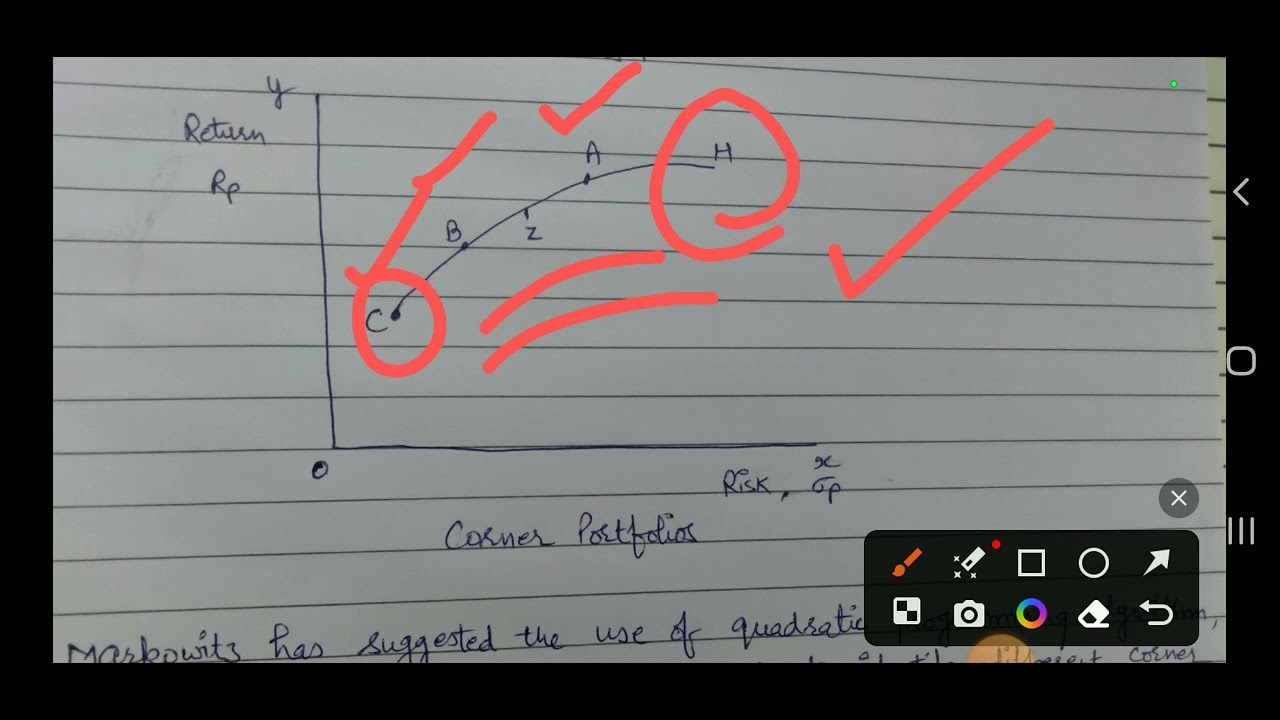 y
Return
Rp
A
H
B
Z
C
O
x
Risk, σp
Corner Portfolios
Markowitz has suggested the use of quadratic
different corner